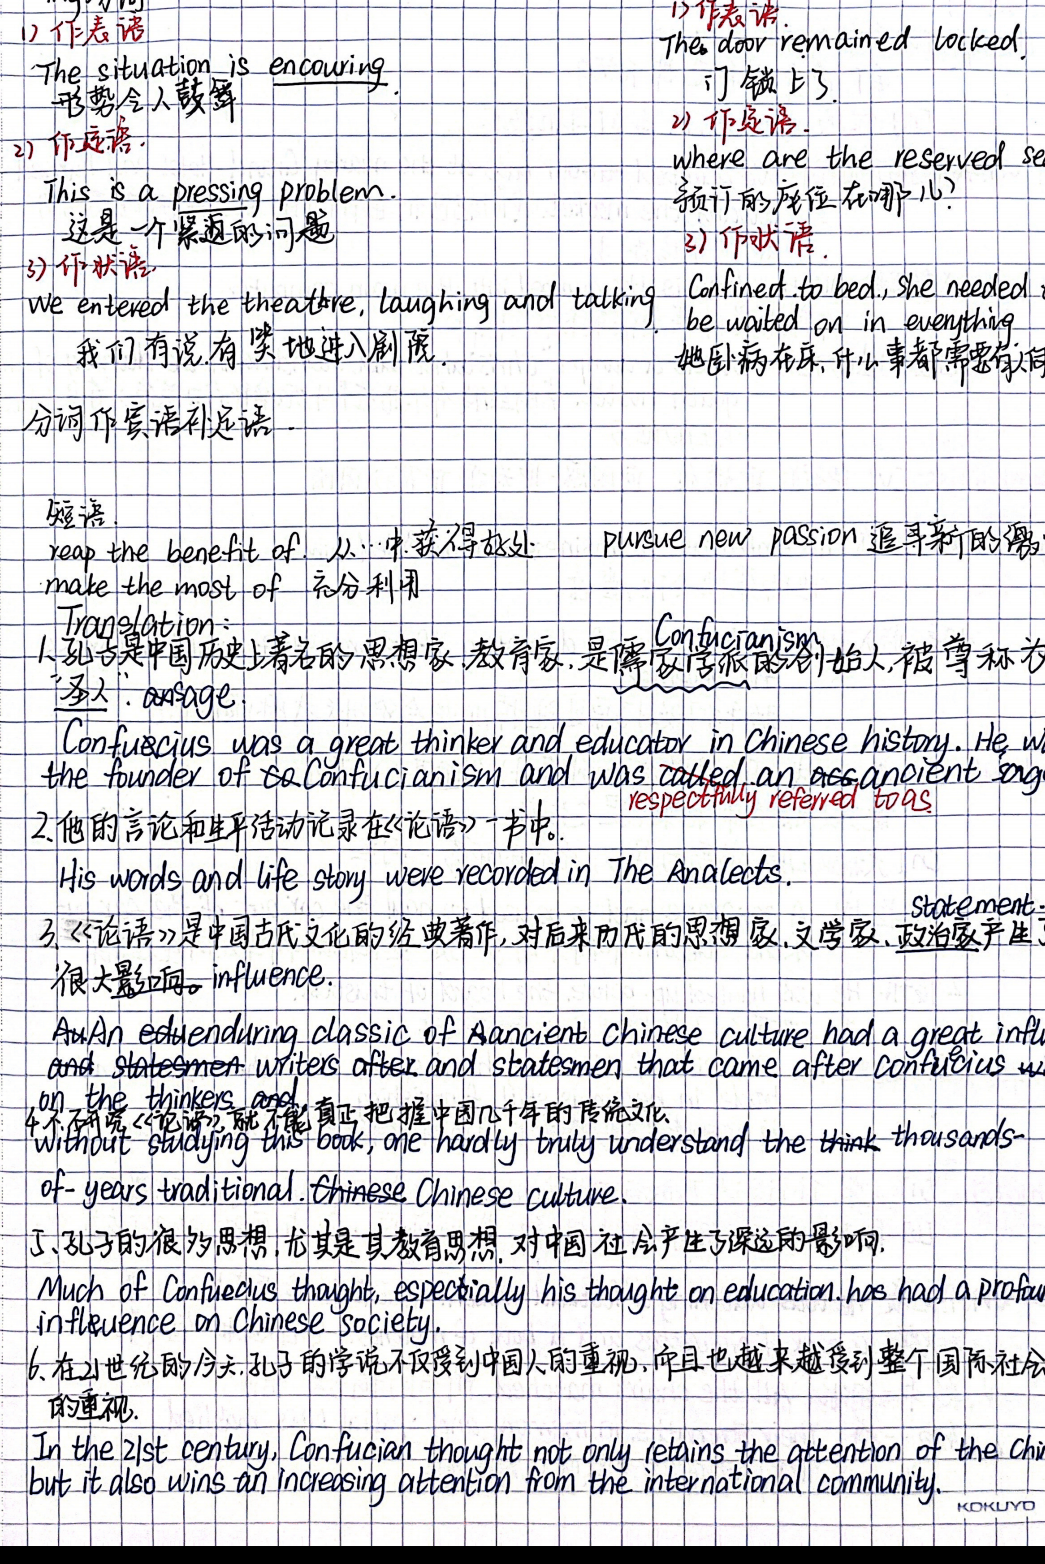 1) 作表语
The situation is encouring.
形势令人鼓舞
2) 作定语.
This is a pressing problem.
这是一个紧迫的问题
3) 作状语.
we entered the theatre, laughing and talking.
我们有说有笑地进入剧院.
1) 作表语.
The door remained locked.
门锁上了.
2) 作定语.
where are the reserved se
预订的座位在哪儿?
3) 作状语.
Confined to bed, she needed
be waited on in everything
她卧病在床,什么事都需要有人
分词作宾语补足语.
短语.
reap the benefit of. 从…中获得好处 pursue new passion 追寻新的
make the most of 充分利用
Translation:
Confucianism
1、孔子是中国历史上著名的思想家、教育家,是儒家学派的创始人,被尊称为
“圣人”. sage.
Confucius was a great thinker and educator in Chinese history. He w
the founder of Confucianism and was called an ancient sag
respectfully referred to as
2、他的言论和生平活动记录在《论语》一书中。
His words and life story were recorded in The Analects.
statement
3、《论语》是中国古代文化的经典著作,对后来历代的思想家、文学家、政治家产生了
很大影响。influence.
An enduring classic of ancient Chinese culture had a great influ
and statesmen writers after and statesmen that came after confucius
on the thinkers and
4、不研究《论语》,就不能真正把握中国几千年的传统文化.
without studying this book, one hardly truly understand the think thousands-
of-years traditional. Chinese Chinese culture.
5、孔子的很多思想,尤其是其教育思想,对中国社会产生了深远的影响.
Much of Confucius thought, especially his thought on education. has had a profou
influence on Chinese society.
6、在21世纪的今天,孔子的学说不仅受到中国人的重视,而且也越来越受到整个国际社会
的重视.
In the 21st century, Confucian thought not only retains the attention of the Chi
but it also wins an increasing attention from the international community.
KOKUYO